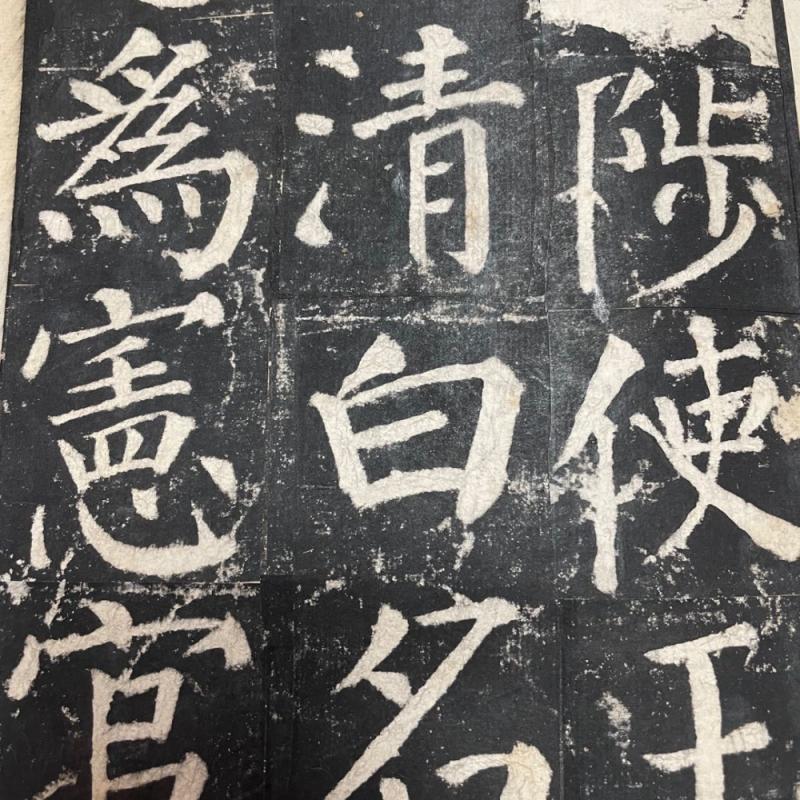 陟使王
清白名
爲憲官